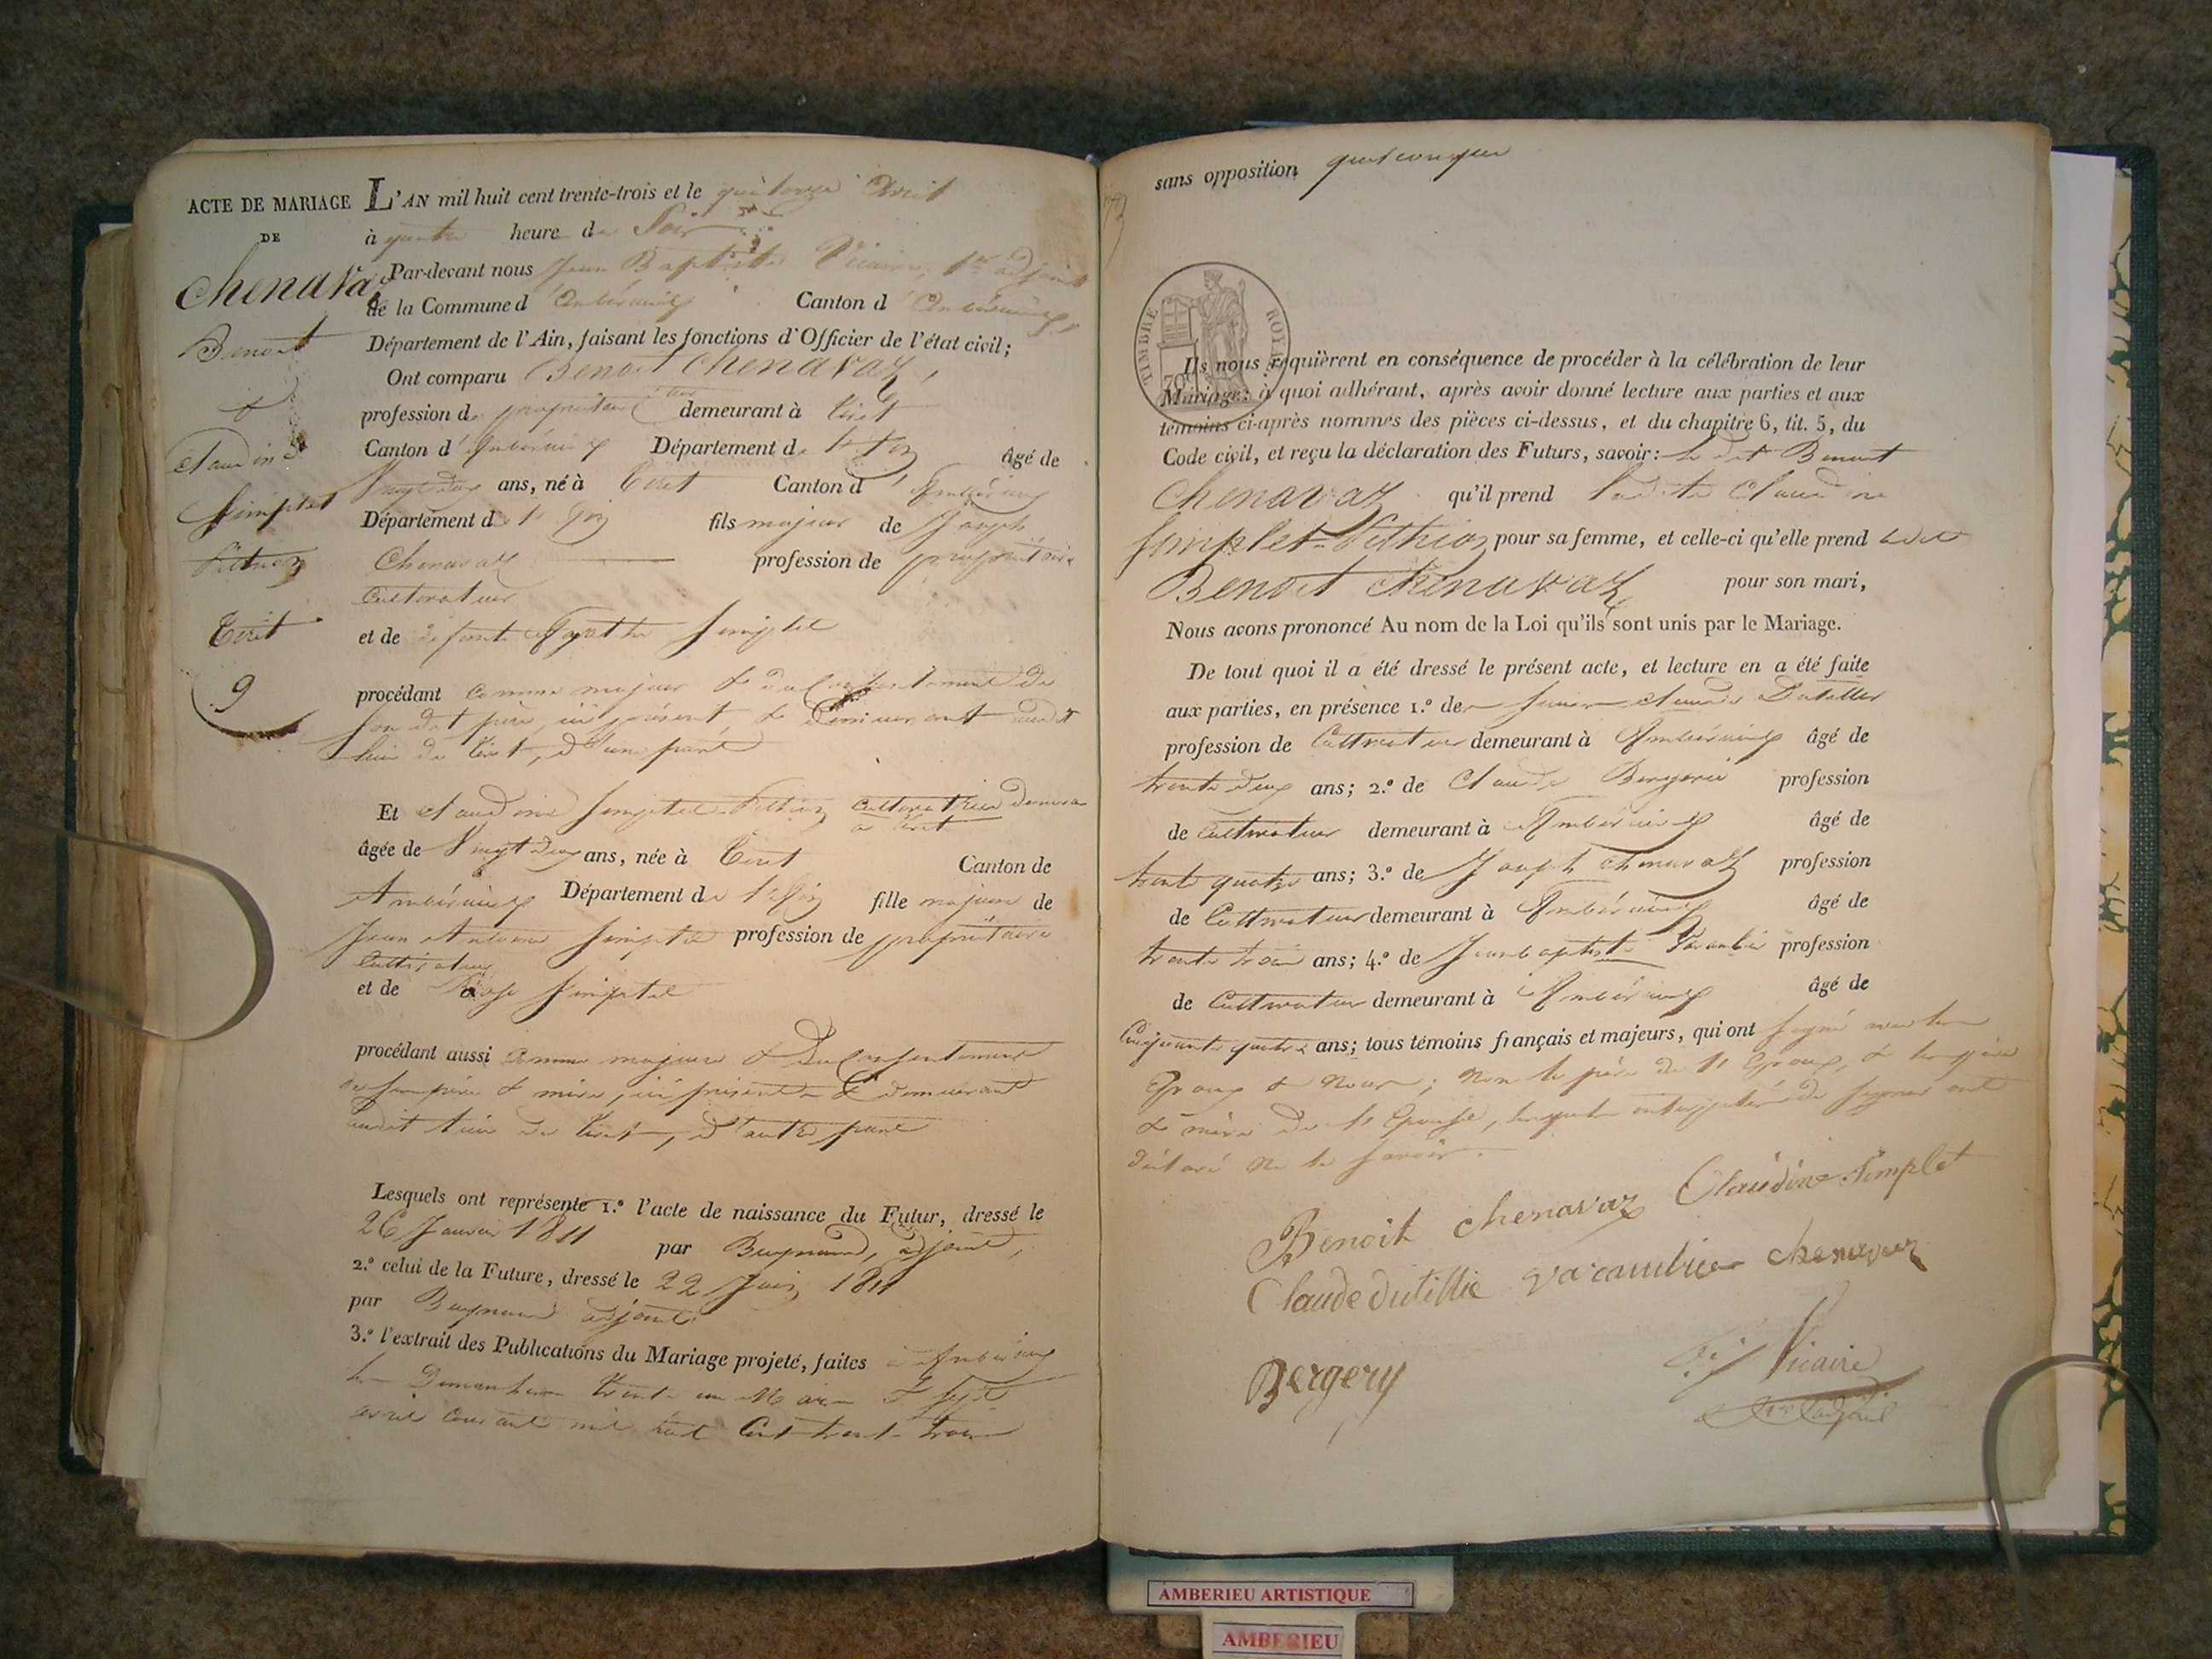 ACTE DE MARIAGE
DE
Chenavaz
Benoit
&
Claudine
Simplet
Pithion
Tiret
9
L'AN mil huit cent trente-trois et le quatorze Avril
à quatre heure du Soir
Par-devant nous Jean Baptiste Vicaire, 1er adjoint
de la Commune d'Ambérieux Canton d'Ambérieux
Département de l'Ain, faisant les fonctions d'Officier de l'état civil;
Ont comparu Benoit Chenavaz,
profession de propriétaire demeurant à Tiret
Canton d'Ambérieux Département de l'Ain âgé de
Vingt deux ans, né à Tiret Canton d'Ambérieux
Département de l'Ain fils majeur de Joseph
Chenavaz profession de propriétaire
Cultivateur
et de défunte Agathe Simplet
procédant comme majeur & du Consentement de
son dit père, ici présent, & demeurant audit
lieu de Tiret, d'une part
Et Claudine Simplet-Pithion Cultivatrice
à Tiret
âgée de Vingt deux ans, née à Tiret Canton de
Ambérieux Département de l'Ain fille majeure de
Jean Antoine Simplet profession de propriétaire
Cultivateur
et de Simplet
procédant aussi comme majeure & du Consentement
de son père & mère, ici présents & demeurant
audit lieu de Tiret, d'autre part
Lesquels ont représenté 1.º l'acte de naissance du Futur, dressé le
26 Janvier 1811 par adjoint,
2.º celui de la Future, dressé le 22 Juin 1811
par adjoint
3.º l'extrait des Publications du Mariage projeté, faites à Ambérieux
les Dimanches trente un Mars & sept
avril courant mil huit Cent trente trois
sans opposition quelconque
TIMBRE ROYAL
70
Ils nous requièrent en conséquence de procéder à la célébration de leur
Mariage; à quoi adhérant, après avoir donné lecture aux parties et aux
témoins ci-après nommés des pièces ci-dessus, et du chapitre 6, tit. 5, du
Code civil, et reçu la déclaration des Futurs, savoir: le dit Benoit
Chenavaz qu'il prend ladite Claudine
Simplet-Pithion pour sa femme, et celle-ci qu'elle prend ledit
Benoit Chenavaz pour son mari,
Nous avons prononcé Au nom de la Loi qu'ils sont unis par le Mariage.
De tout quoi il a été dressé le présent acte, et lecture en a été faite
aux parties, en présence 1.º de Claude Dutillier
profession de Cultivateur demeurant à Ambérieux âgé de
trente deux ans; 2.º de Claude Bergerie profession
de Cultivateur demeurant à Ambérieux âgé de
trente quatre ans; 3.º de Joseph Chenavaz profession
de Cultivateur demeurant à Ambérieux âgé de
trente trois ans; 4.º de Jeanbaptiste profession
de Cultivateur demeurant à Ambérieux âgé de
Cinquante quatre ans; tous témoins français et majeurs, qui ont signé avec les
Epoux & Nous; Non le père de l'Epoux, & les père
& mère de l'Epouse, lesquels interpellés de signer ont
déclaré ne le savoir.
Benoit chenavaz Claudine Simplet
Claude dutillie chenavaz
Bergery
Vicaire
1er adjoint
AMBERIEU ARTISTIQUE
AMBERIEU